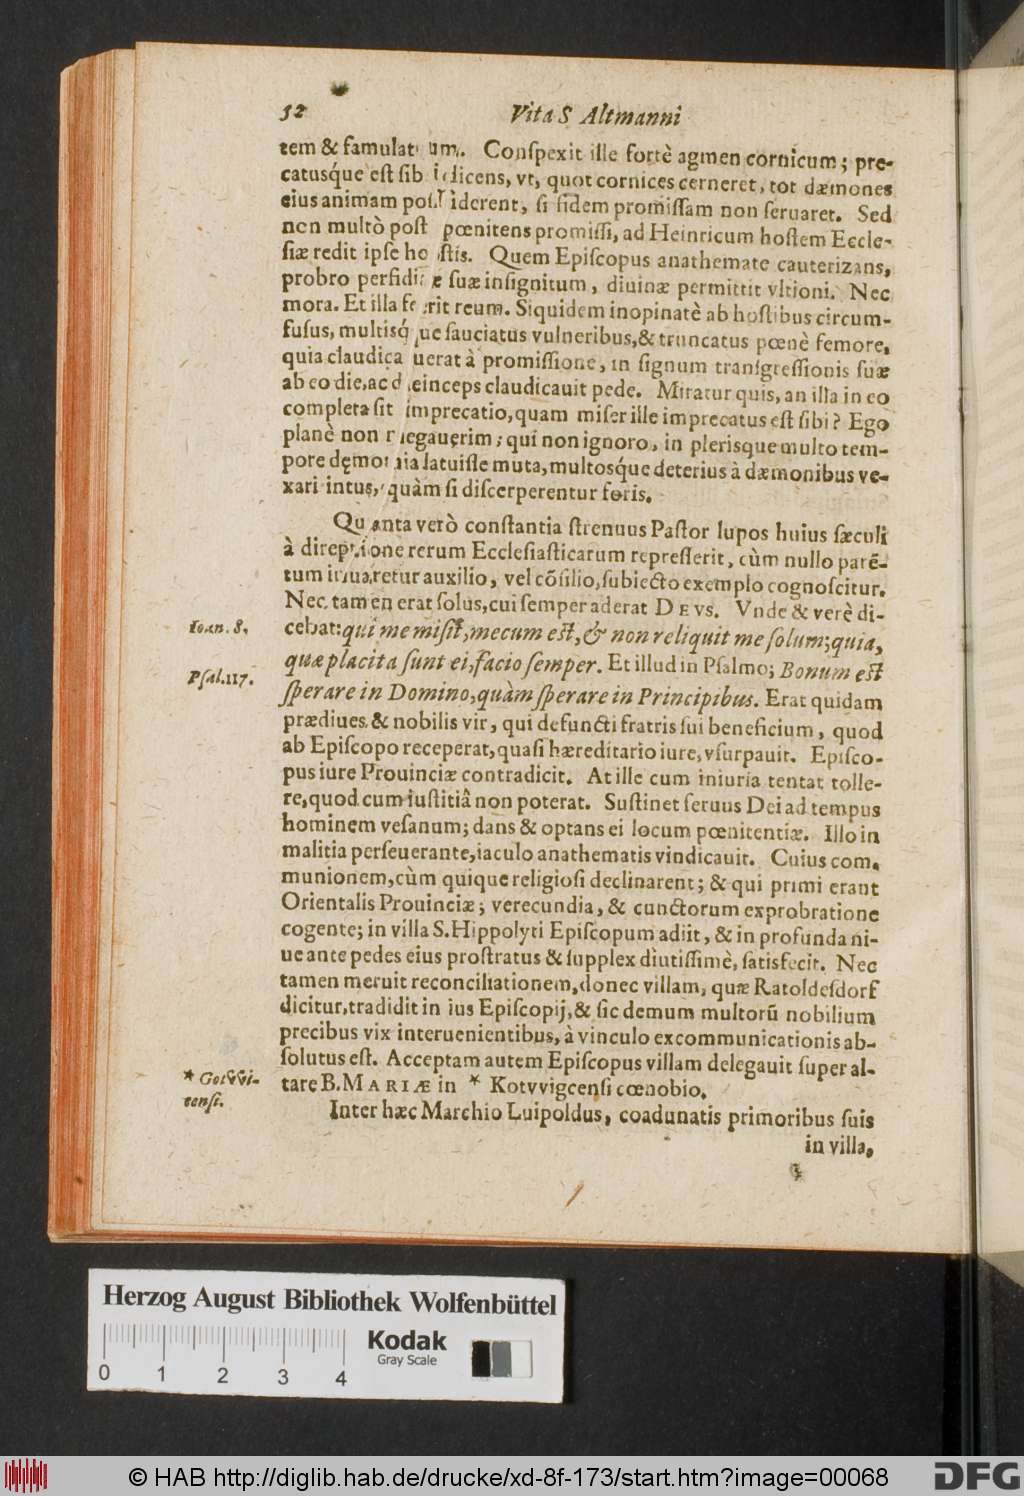 52 Vita S Altmanni
tem & famulatum. Conſpexit ille fortè agmen cornicum; pre-
catusq́ue eſt ſibi dicens, vt, quot cornices cerneret, tot dæmones
eius animam poſſiderent, ſi fidem promiſſam non ſeruaret. Sed
non multò poſt pœnitens promiſſi, ad Heinricum hoſtem Eccle-
ſiæ redit ipſe hoſtis. Quem Epiſcopus anathemate cauterizans,
probro perfidiæ ſuæ inſignitum, diuinæ permittit vltioni. Nec
mora. Et illa ferit reum. Siquidem inopinatè ab hoſtibus circum-
fuſus, multisq́ue ſauciatus vulneribus, & truncatus pœnè femore,
quia claudicauerat à promiſſione, in ſignum tranſgreſſionis ſuæ
ab eo die, ac deinceps claudicauit pede. Miratur quis, an illa in eo
completa ſit imprecatio, quam miſer ille imprecatus eſt ſibi? Ego
planè non negauerim; qui non ignoro, in plerisque multo tem-
pore dęmonia latuiſſe muta, multosq́ue deterius à dæmonibus ve-
xari intus, quàm ſi diſcerperentur foris.
Quanta verò conſtantia ſtrenuus Paſtor lupos huius ſæculi
à direptione rerum Eccleſiaſticarum repreſſerit, cùm nullo parẽ-
tum iuuaretur auxilio, vel cõſilio, ſubiecto exemplo cognoſcitur.
Nec tamen erat ſolus, cui ſemper aderat DEVS. Vnde & verè di-
Ioan. 8. cebat: qui me miſit, mecum eſt, & non reliquit me ſolum; quia,
quæ placita ſunt ei, facio ſemper. Et illud in Pſalmo; Bonum eſt
Pſal. 117. ſperare in Domino, quàm ſperare in Principibus. Erat quidam
prædiues & nobilis vir, qui defuncti fratris ſui beneficium, quod
ab Epiſcopo receperat, quaſi hæreditario iure, vſurpauit. Epiſco-
pus iure Prouinciæ contradicit. At ille cum iniuria tentat tolle-
re, quod cum iuſtitiâ non poterat. Suſtinet ſeruus Dei ad tempus
hominem veſanum; dans & optans ei locum pœnitentiæ. Illo in
malitia perſeuerante, iaculo anathematis vindicauit. Cuius com-
munionem, cùm quique religioſi declinarent; & qui primi erant
Orientalis Prouinciæ; verecundia, & cunctorum exprobratione
cogente; in villa S. Hippolyti Epiſcopum adiit, & in profunda ni-
ue ante pedes eius proſtratus & ſupplex diutiſſimè, ſatisfecit. Nec
tamen meruit reconciliationem, donec villam, quæ Ratoldesdorf
dicitur, tradidit in ius Epiſcopij, & ſic demum multorũ nobilium
precibus vix interuenientibus, à vinculo excommunicationis ab-
ſolutus eſt. Acceptam autem Epiſcopus villam delegauit ſuper al-
tare B. MARIÆ in * Kotvvigcenſi cœnobio.
* Gotvvi-
cenſi.
Inter hæc Marchio Luipoldus, coadunatis primoribus ſuis
in villa,
Herzog August Bibliothek Wolfenbüttel
Kodak
Gray Scale
0 1 2 3 4
© HAB http://diglib.hab.de/drucke/xd-8f-173/start.htm?image=00068
DFG